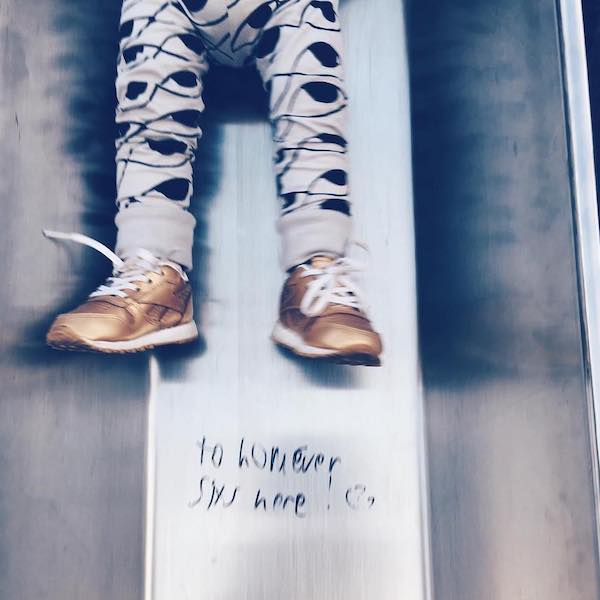 to homever
sits here!